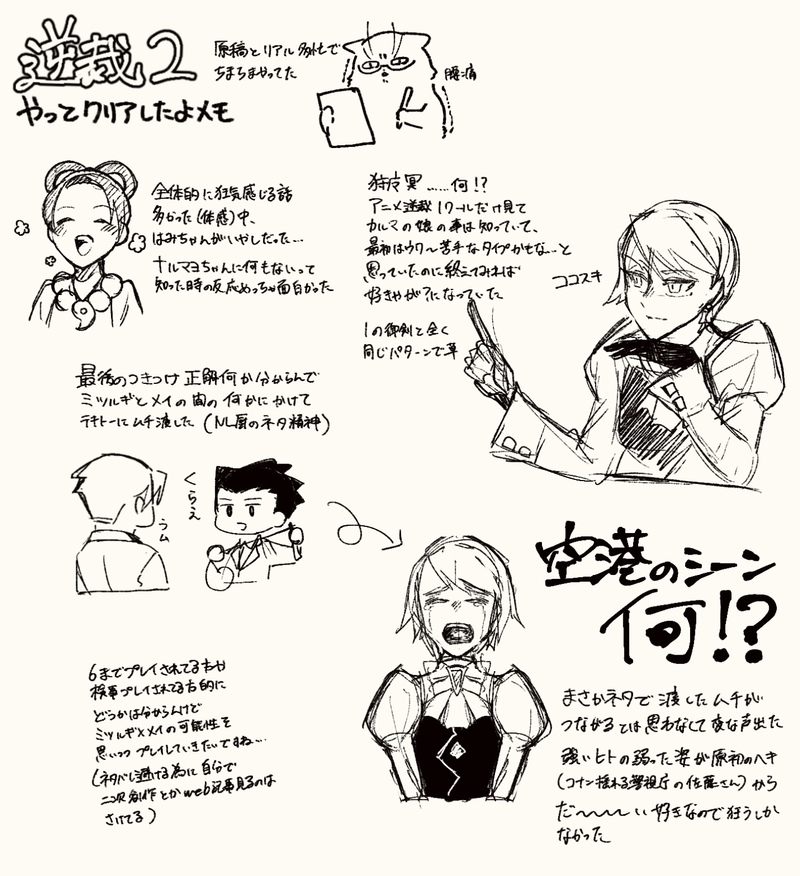 逆裁2
やってクリアしたよメモ
原稿とリアル多忙で
ちまちまやってた
腰痛
全体的に狂気感じる話
多かった(体感)中、
はみちゃんがいやしだった…
ナルマヨちゃんに何もないって
知った時の反応めっちゃ面白かった
狩魔冥……何!?
アニメ逆裁1クールだけ見て
カルマの娘の事は知っていて、
最初はウワ〜苦手なタイプかもな…と
思っていたのに終えてみれば
好きやが?になっていた
1の御剣と全く
同じパターンで草
ココスキ
最後のつきつけ正解何か分からんで
ミツルギとメイの間の何かにかけて
テキトーにムチ渡した(NL厨のネタ精神)
くらえ
うム
空港のシーン
何!?
まさかネタで渡したムチが
つながるとは思わなくて変な声出た
強いヒトの弱った姿が原初のヘキ
(コナン揺れる警視庁の佐藤さん)から
だ〜〜〜い好きなので狂うしか
なかった
6までプレイされてる方や
検事プレイされてる方的に
どうかは分からんけど
ミツルギ×メイの可能性を
思いつつプレイしていきたいですね…
(ネタバレ避ける為に自分で
二次創作とかweb記事見るのは
さけてる)